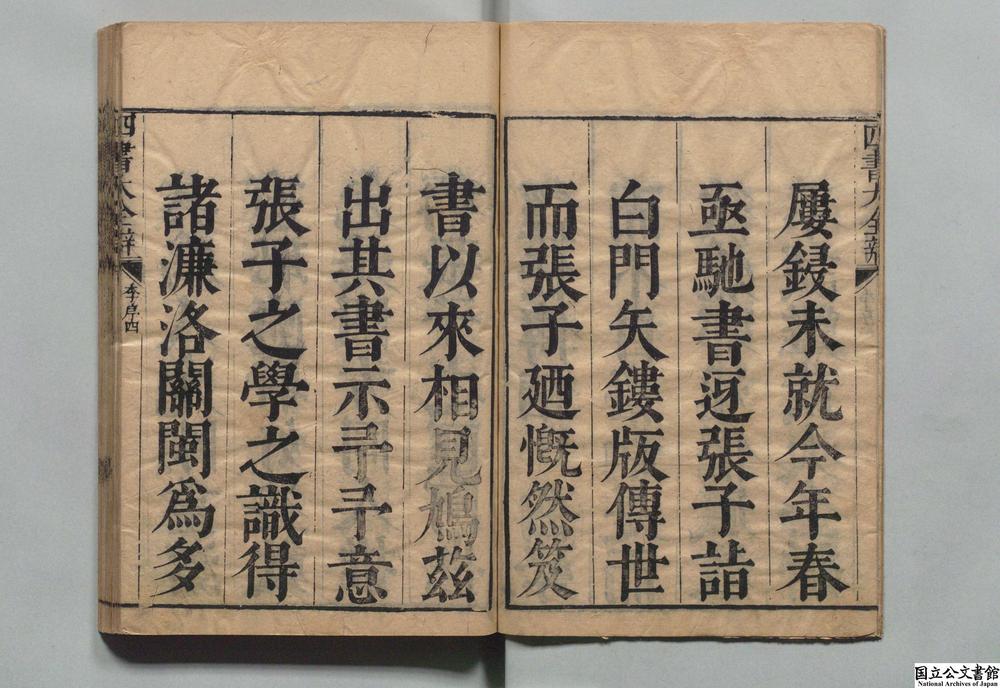 屢鋟未就今年春
亟馳書迓張子詣
白門矢鏤版傳世
而張子廼慨然笈
書以來相見鳩茲
出其書示予予意
張子之學之識得
諸濂洛關閩爲多
四書大全辯
季序四
国立公文書館
National Archives of Japan